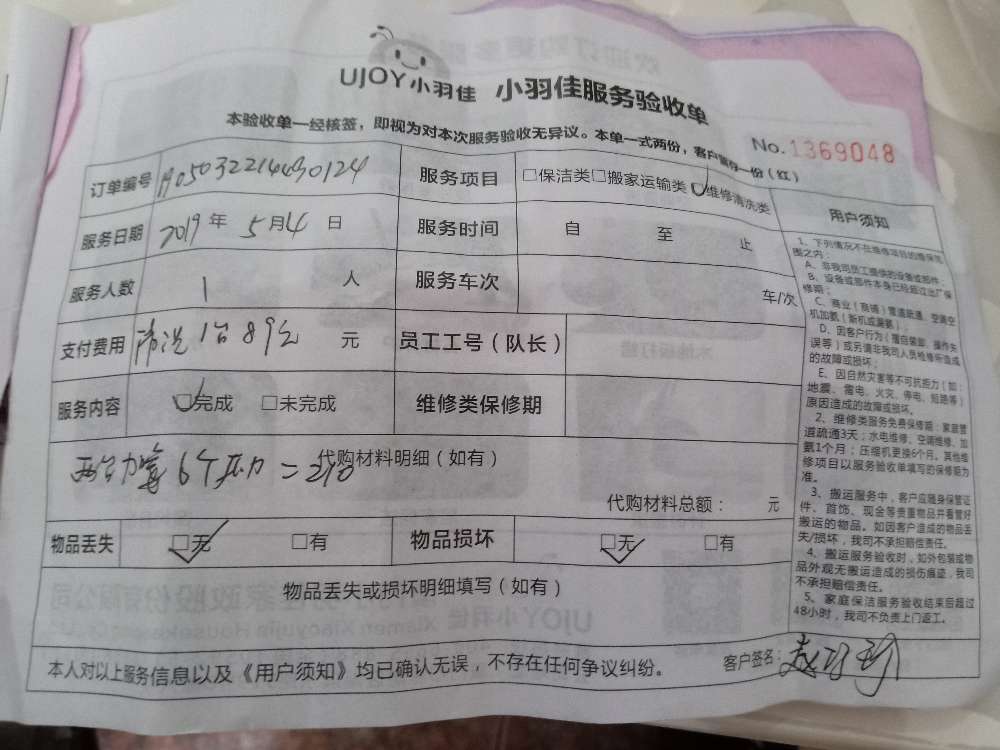 UJOY小羽佳 小羽佳服务验收单
本验收单一经核签，即视为对本次服务验收无异议。本单一式两份，客户留存一份（红）
No.1369048
订单编号
服务项目 □保洁类□搬家运输类□维修清洗类
服务日期 2019年 5月4日
服务时间 自 至 止
服务人数 1 人
服务车次 车/次
支付费用 清洗1台89元 元
员工工号（队长）
服务内容 □完成 □未完成
维修类保修期
代购材料明细（如有）
6个压力=
代购材料总额： 元
物品丢失 □无 □有
物品损坏 □无 □有
物品丢失或损坏明细填写（如有）
本人对以上服务信息以及《用户须知》均已确认无误，不存在任何争议纠纷。
客户签名：
用户须知
1、下列情况不在维修项目的维保范
围之内：
A、非我司员工提供的设备或部件
B、设备或部件本身已经超过出厂保
修期；
C、商业（商铺）管道疏通、空调空
机加氨（新机或漏氨）；
D、因客户行为（擅自装卸、操作失
误等）或另请非我司人员检修所造成
的故障或损坏；
E、因自然灾害等不可抗拒力（如：
地震、雷电、火灾、停电、短路等）
原因造成的故障或损坏。
2、维修类服务免费保修期：家庭管
道疏通3天；水电维修、空调维修、加
氨1个月；压缩机更换6个月。其他维
修项目以服务验收单填写的保修期为
准。
3、搬运服务中，客户应随身保管证
件、首饰、现金等贵重物品并看管好
搬运的物品。如因客户造成的物品丢
失/损坏，我司不承担赔偿责任。
4、搬运服务验收时，如外包装或物
品外观无搬运造成的损伤痕迹，我司
不承担赔偿责任。
5、家庭保洁服务验收结束后超过
48小时，我司不负责上门返工。